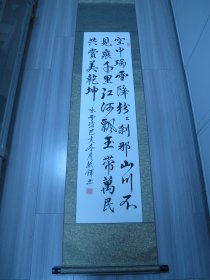 空中瑞雪降纷纷刹那山川不
见痕千里江河飘玉带万民
共赏美乾坤
咏雪诗己亥年